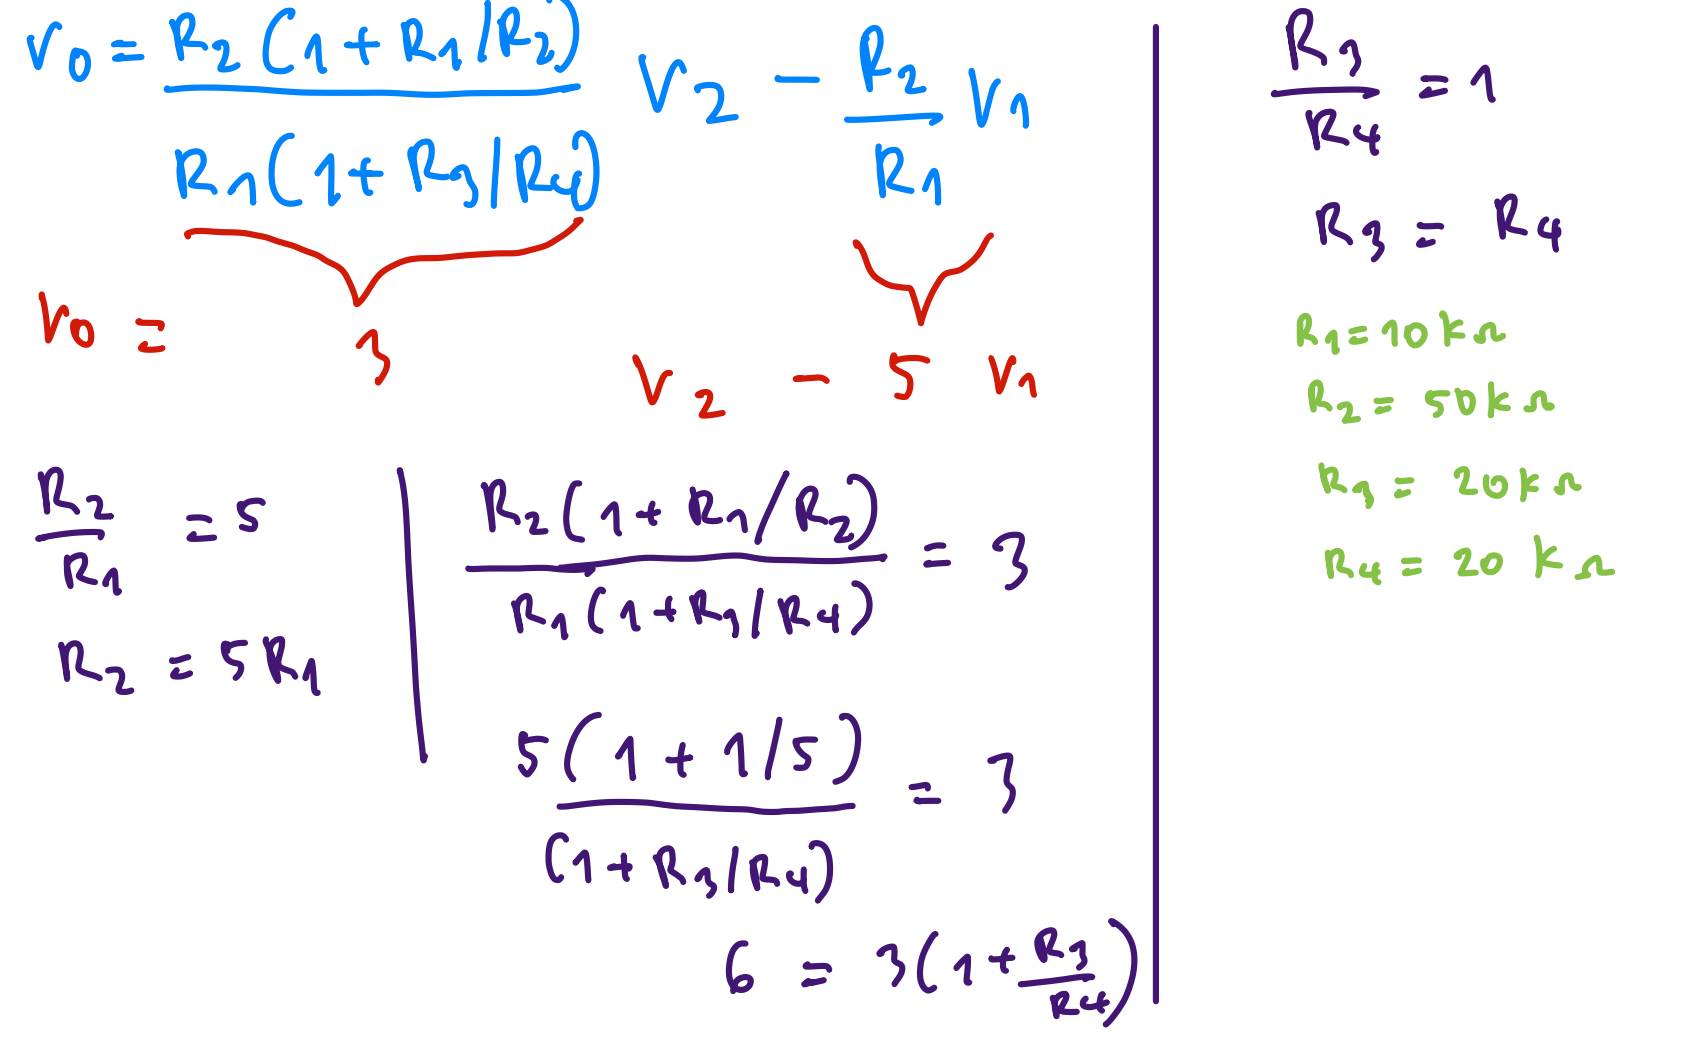 v0 = R2(1+R1/R2) / R1(1+R3/R4) V2 - R2/R1 V1
v0 = 3 V2 - 5 V1
R2/R1 = 5
R2 = 5R1
R2(1+R1/R2) / R1(1+R3/R4) = 3
5(1+1/5) / (1+R3/R4) = 3
6 = 3(1+R3/R4)
R3/R4 = 1
R3 = R4
R1=10kΩ
R2 = 50kΩ
R3 = 20kΩ
R4 = 20 kΩ